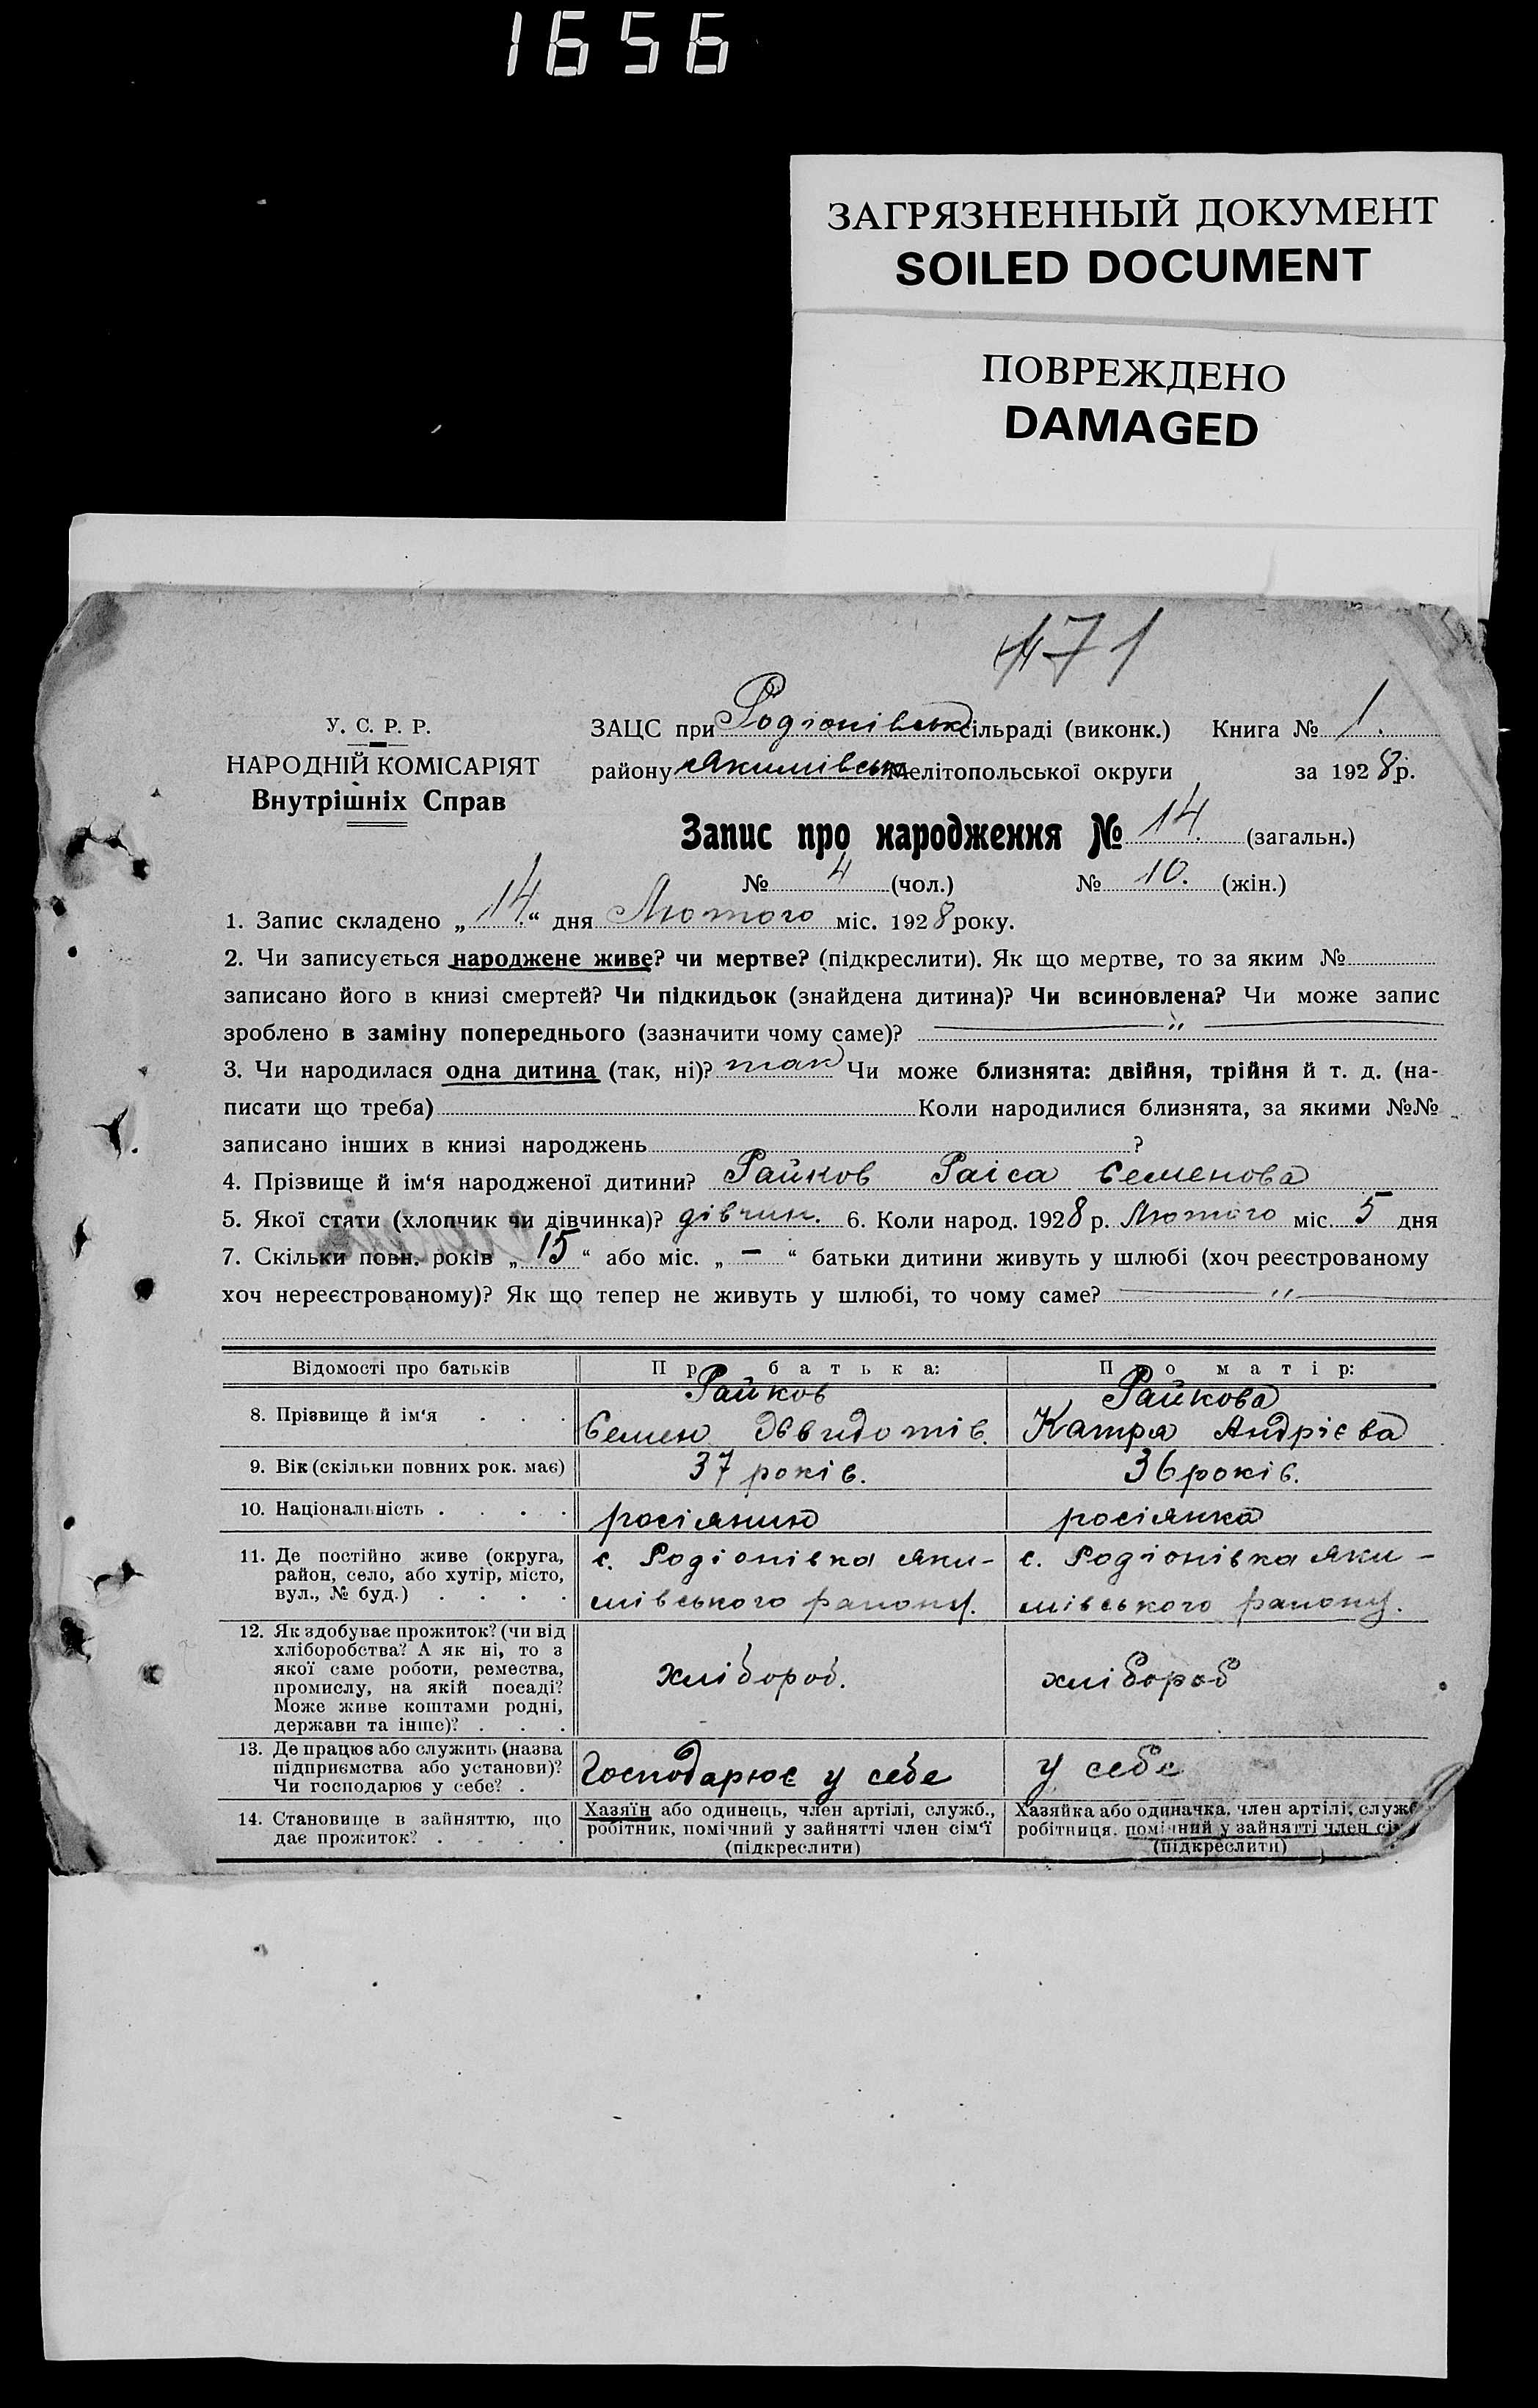 1656
ЗАГРЯЗНЕННЫЙ ДОКУМЕНТ
SOILED DOCUMENT
ПОВРЕЖДЕНО
DAMAGED
471
У. С. Р. Р.
НАРОДНІЙ КОМІСАРІЯТ
Внутрішніх Справ
ЗАЦС при Родіонівськ сільраді (виконк.) Книга № 1.
району Якимівськ Мелітопольської округи за 1928 р.
Запис про народження № 14. (загальн.)
№ 4 (чол.) № 10. (жін.)
1. Запис складено „ 14 “ дня Лютого міс. 1928 року.
2. Чи записується народжене живе? чи мертве? (підкреслити). Як що мертве, то за яким №
записано його в книзі смертей? Чи підкидьок (знайдена дитина)? Чи всиновлена? Чи може запис
зроблено в заміну попереднього (зазначити чому саме)? — „ —
3. Чи народилася одна дитина (так, ні)? так Чи може близнята: двійня, трійня й т. д. (на-
писати що треба) Коли народилися близнята, за якими №№
записано інших в книзі народжень ?
4. Прізвище й ім'я народженої дитини? Райков Раіса Семенова
5. Якої стати (хлопчик чи дівчинка)? дівчин. 6. Коли народ. 1928 р. Лютого міс. 5 дня
7. Скільки повн. років „ 15 “ або міс. „ — “ батьки дитини живуть у шлюбі (хоч реєстрованому
хоч нереєстрованому)? Як що тепер не живуть у шлюбі, то чому саме? — „ —
Відомості про батьків Про батька: Про матір:
8. Прізвище й ім'я . . . Райков
Семен Райкова
Катря Андрієва
9. Вік (скільки повних рок. має) 37 років. 36 років.
10. Національність . . . . росіянин росіянка
11. Де постійно живе (округа,
район, село, або хутір, місто,
вул., № буд.) . . . .
с. Родіонівка Яки-
мівського району.
с. Родіонівка Яки-
мівського району.
12. Як здобуває прожиток? (чи від
хліборобства? А як ні, то з
якої саме роботи, ремества,
промислу, на якій посаді?
Може живе коштами родні,
держави та інше)? . . .
хлібороб.
хлібороб
13. Де працює або служить (назва
підприємства або установи)?
Чи господарює у себе? .
Господарює у себе
у себе
14. Становище в зайняттю, що
дає прожиток? . . . .
Хазяїн або одинець, член артілі, служб.,
робітник, помічний у зайнятті член сім'ї
(підкреслити)
Хазяйка або одиначка, член артілі, служб
робітниця. помічний у зайнятті член сім
(підкреслити)